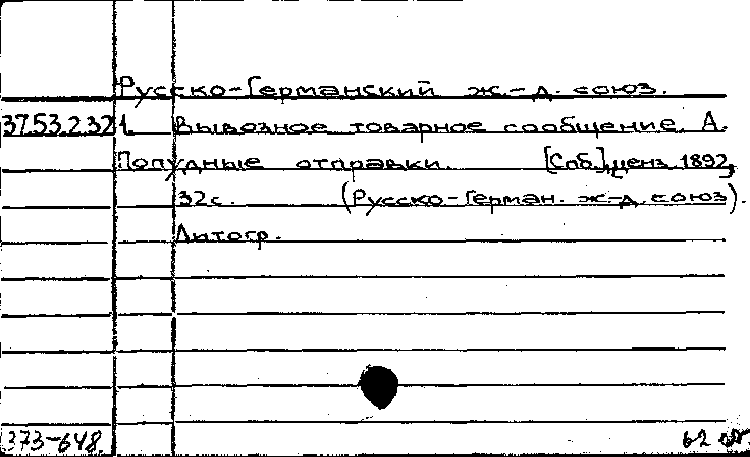 Русско-Германский ж.-д. союз.
37.53.2.321. Вывозное товарное сообщение. А.
Попудные отправки. [Спб], ценз. 1892,
32с. (Русско-Герман. ж-д. союз).
Литогр.
373-648. 62